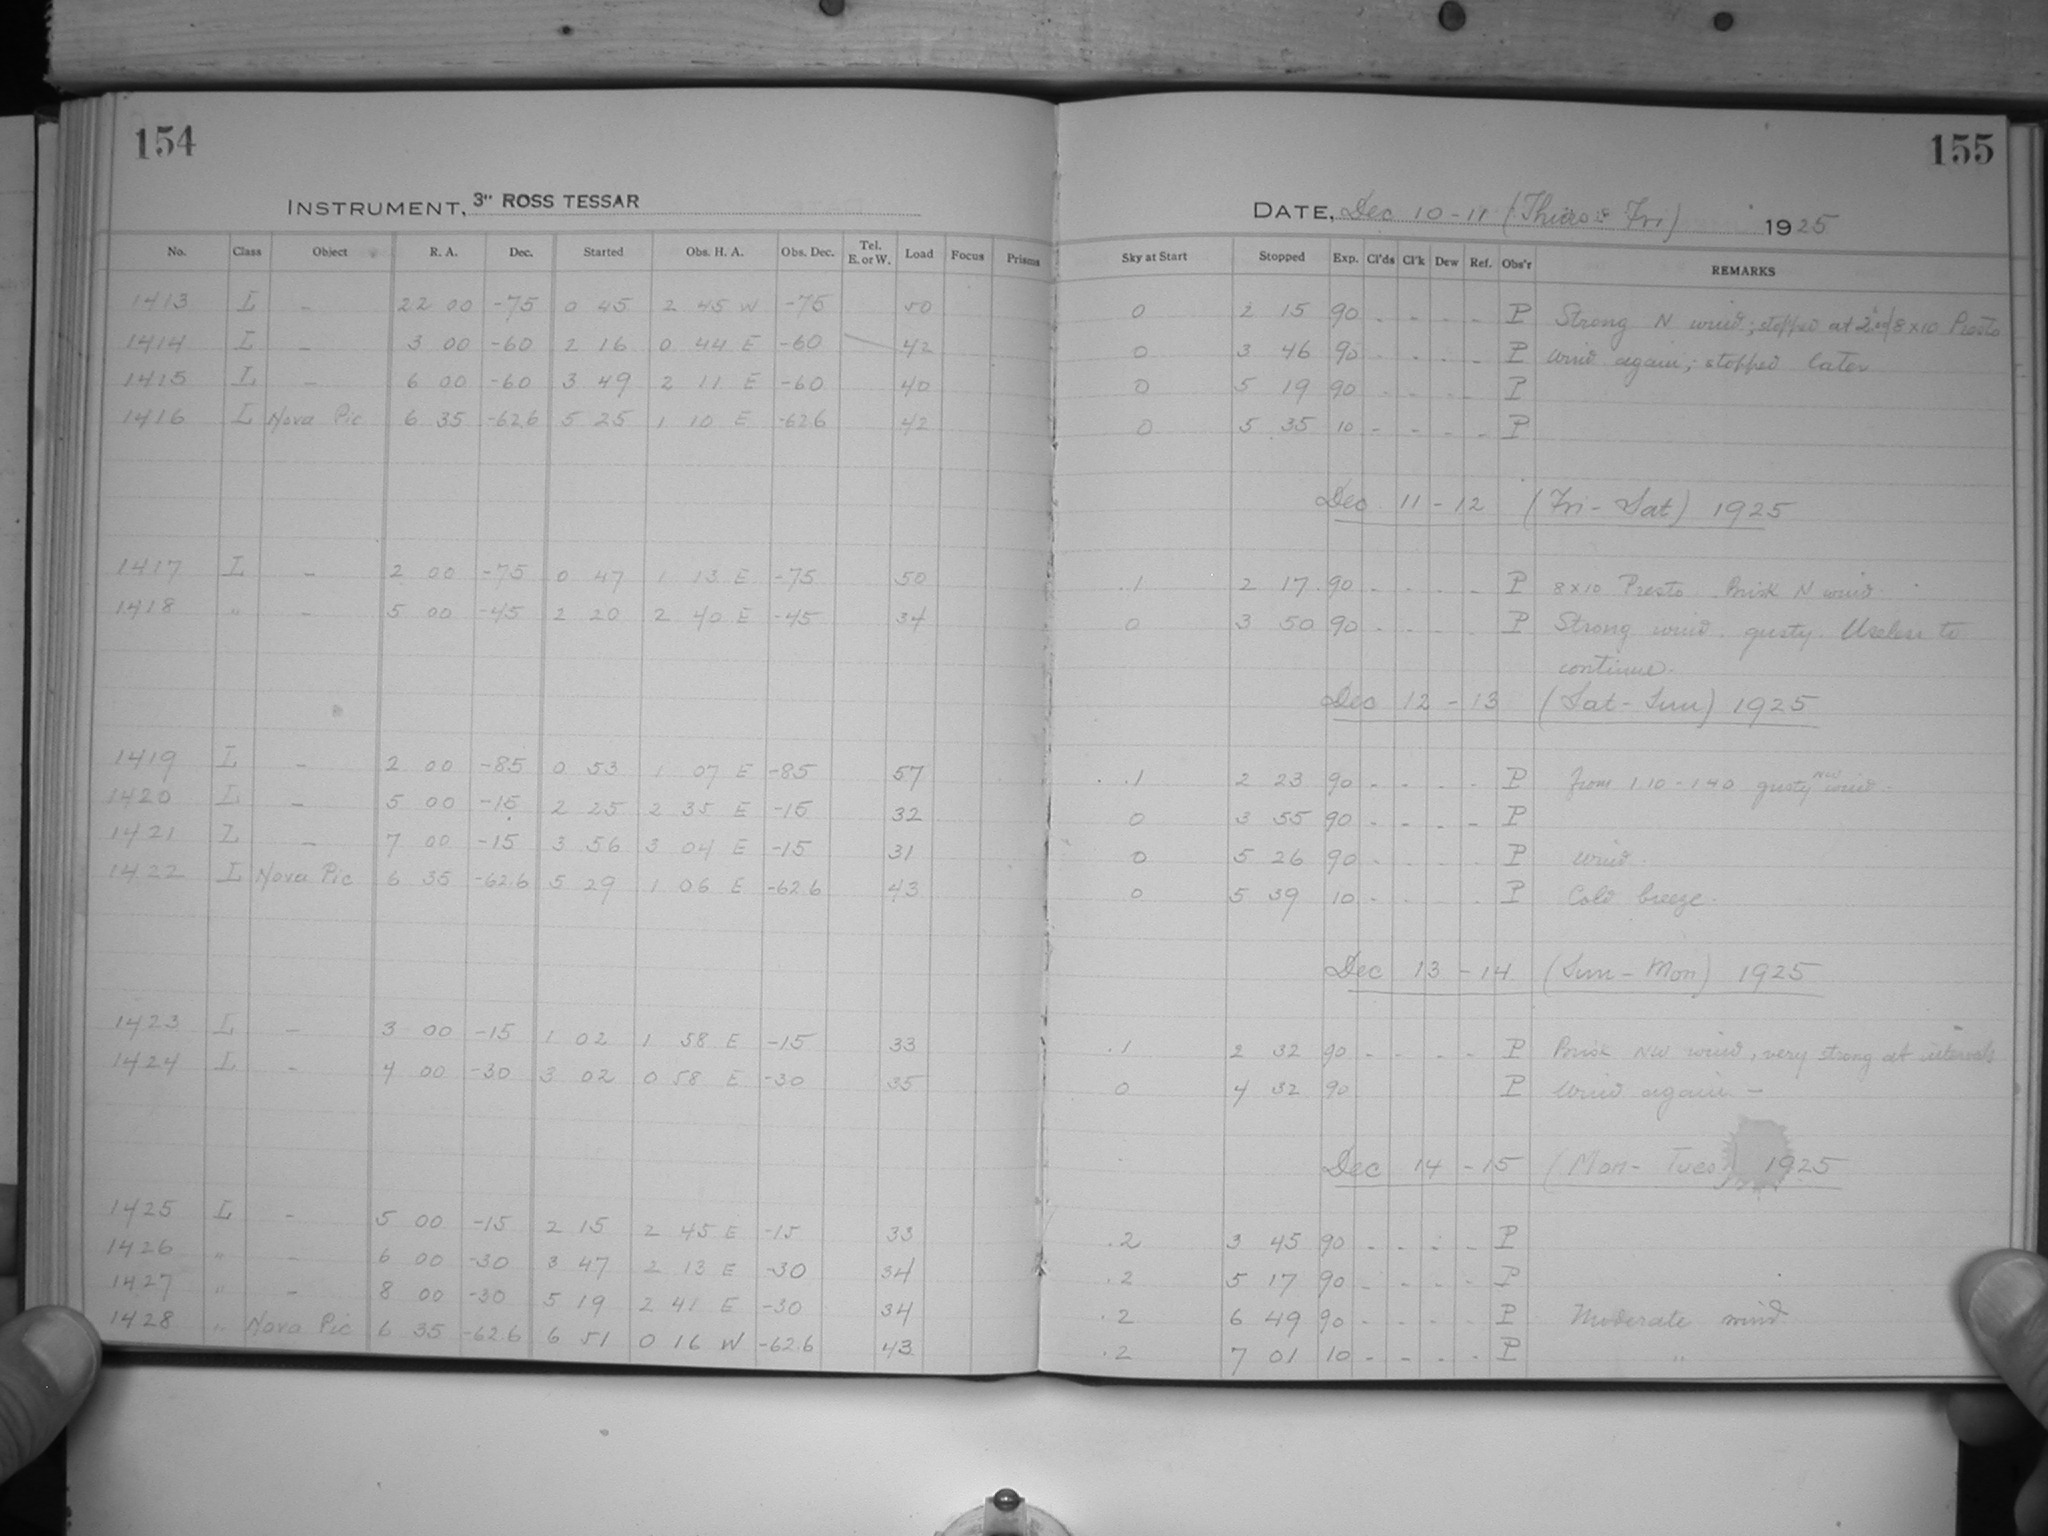 154
155
INSTRUMENT, 3" ROSS TESSAR
DATE, Dec 10-11 (Thurs & Fri) 1925
No. Class Object R. A. Dec. Started Obs. H. A. Obs. Dec. Tel. E. or W. Load Focus Prisms Sky at Start Stopped Exp. Cl'ds Cl'k Dew Ref. Obs'r REMARKS
1413 L - 22 00 -75 0 45 2 45 W -75 50 0 2 15 90 - - - - P Strong N wind; stopped at 2nd 8x10 Presto
1414 L - 3 00 -60 2 16 0 44 E -60 42 0 3 46 90 - - - - P Wind again; stopped later
1415 L - 6 00 -60 3 49 2 11 E -60 40 0 5 19 90 - - - - P
1416 L Nova Pic 6 35 -62.6 5 25 1 10 E -62.6 42 0 5 35 10 - - - - P
Dec 11-12 (Fri-Sat) 1925
1417 L - 2 00 -75 0 47 1 13 E -75 50 .1 2 17 90 - - - - P 8x10 Presto. Brisk N wind
1418 " - 5 00 -45 2 20 2 40 E -45 34 0 3 50 90 - - - - P Strong wind. gusty. Useless to
continue.
Dec 12-13 (Sat-Sun) 1925
1419 L - 2 00 -85 0 53 1 07 E -85 57 .1 2 23 90 - - - - P From 1.10-1.40 gusty NW wind.
1420 L - 5 00 -15 2 25 2 35 E -15 32 0 3 55 90 - - - - P
1421 L - 7 00 -15 3 56 3 04 E -15 31 0 5 26 90 - - - - P Wind.
1422 L Nova Pic 6 35 -62.6 5 29 1 06 E -62.6 43 0 5 39 10 - - - - P Cold breeze.
Dec 13-14 (Sun-Mon) 1925
1423 L - 3 00 -15 1 02 1 58 E -15 33 .1 2 32 90 - - - - P Brisk NW wind, very strong at intervals
1424 L - 4 00 -30 3 02 0 58 E -30 35 0 4 32 90 P Wind again -
Dec 14-15 (Mon-Tues) 1925
1425 L - 5 00 -15 2 15 2 45 E -15 33 .2 3 45 90 - - - - P
1426 " - 6 00 -30 3 47 2 13 E -30 34 .2 5 17 90 - - - - P
1427 " - 8 00 -30 5 19 2 41 E -30 34 .2 6 49 90 - - - - P Moderate wind
1428 " Nova Pic 6 35 -62.6 6 51 0 16 W -62.6 43 .2 7 01 10 - - - - P "